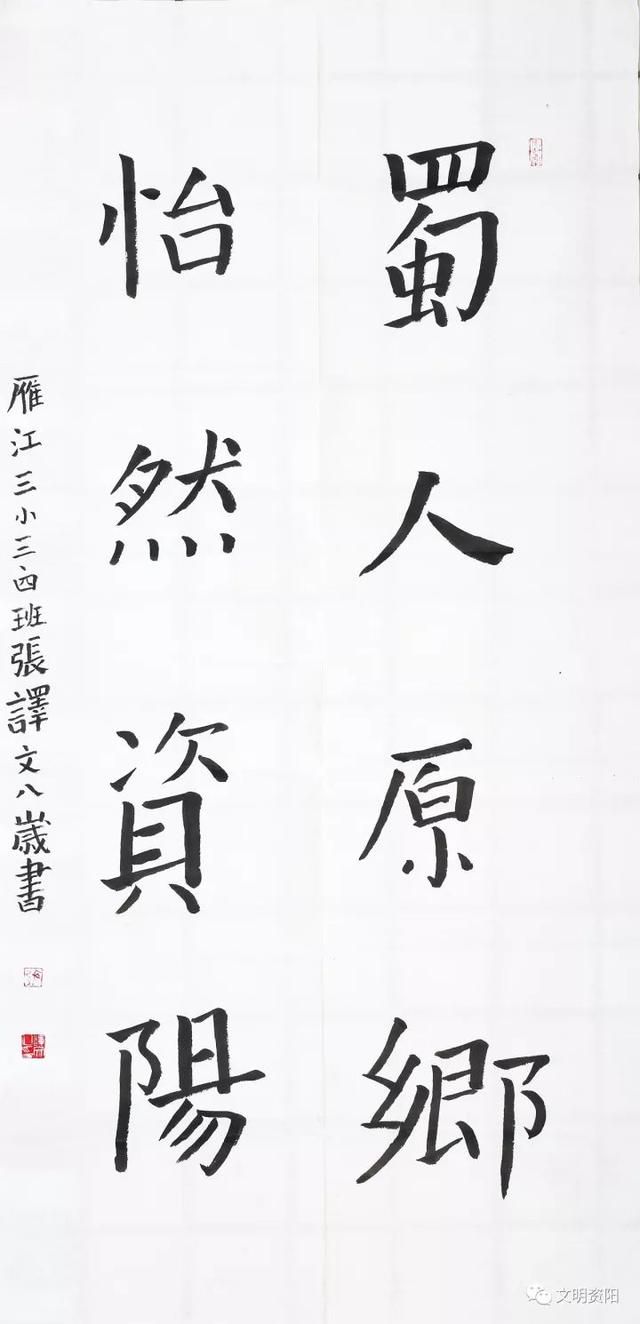 蜀人原鄉
怡然資陽
雁江三小三四班張譯文八歲書
文明资阳